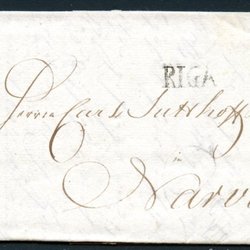 RIGA
Herrn Carl Sutthoff
in
Narv